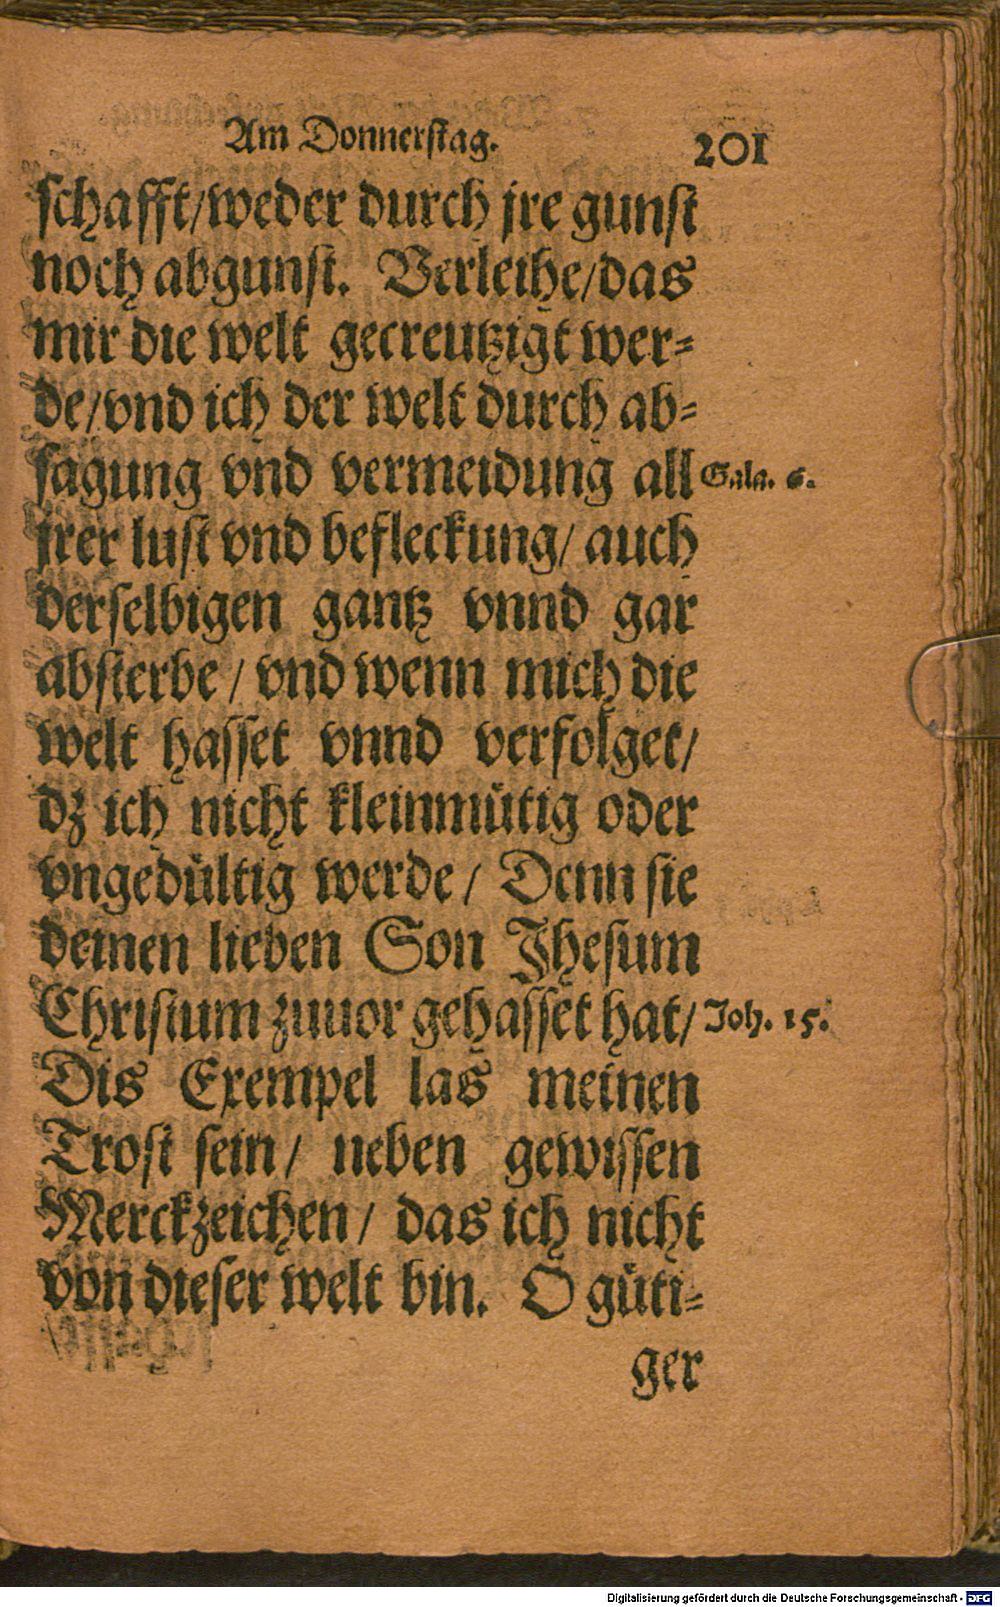 Am Donnerstag.
201
schafft/weder durch jre gunst
noch abgunst. Verleihe/das
mir die welt gecreutzigt wer-
de/vnd ich der welt durch ab-
sagung vnd vermeidung all
Gala. 6.
jrer lust vnd befleckung/ auch
derselbigen gantz vnnd gar
absterbe / vnd wenn mich die
welt hasset vnnd verfolget/
dz ich nicht kleinmütig oder
vngedültig werde / Denn sie
deinen lieben Son Jhesum
Christum zuuor gehasset hat/
Joh. 15.
Dis Exempel las meinen
Trost sein / neben gewissen
Merckzeichen / das ich nicht
von dieser welt bin. O güti-
ger
Digitalisierung gefördert durch die Deutsche Forschungsgemeinschaft - DFG